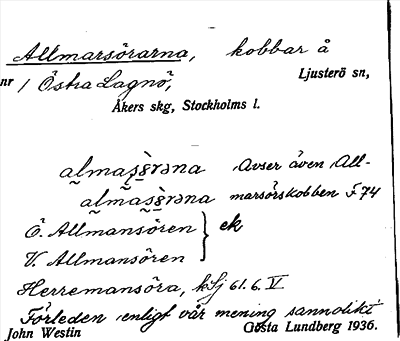 Allmarsörarna, kobbar å
nr 1 Östra Lagnö, Ljusterö sn,
Åkers skg, Stockholms l.
Avser även All-
marsörskobben F 74
Ö. Allmansören } ek
V. Allmansören
Herremansöra, kSj 61. 6. V
Förleden enligt vår mening sannolikt
John Westin Gösta Lundberg 1936.